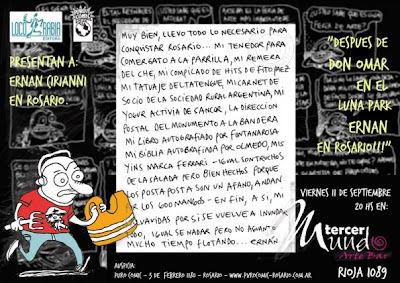 LOCO RABIA
EDITORA
PRESENTAN A:
ERNAN CIRIANNI
EN ROSARIO
MUY BIEN, LLEVO TODO LO NECESARIO PARA
CONQUISTAR ROSARIO... MI TENEDOR PARA
COMER GATO A LA PARRILLA, MI REMERA
DEL CHE, MI COMPILADO DE HITS DE FITO PAEZ
MI TATUAJE DEL TATENGUE, MI CARNET DE
SOCIO DE LA SOCIEDAD RURAL ARGENTINA, MI
YOGUR ACTIVIA DE SANCOR, LA DIRECCIÓN
POSTAL DEL MONUMENTO A LA BANDERA
MI LIBRO AUTOGRAFIADO POR FONTANAROSA
MI BIBLIA AUTOGRAFIADA POR OLMEDO, MIS
YINS MARCA FERRARI - IGUAL SON TRUCHOS
DE LA SALADA PERO BIEN HECHOS PORQUE
LOS POSTA POSTA SON UN AFANO, ANDAN
POR LOS 600 MANGOS - EN FIN, A SI, MI
SALVAVIDAS POR SI SE VUELVE A INUNDAR
TODO, IGUAL SE NADAR PERO NO AGUANTO
MUCHO TIEMPO FLOTANDO... ERNÁN
"DESPUES DE
DON OMAR
EN EL
LUNA PARK
ERNAN
EN ROSARIO!!!"
VIERNES 11 DE SEPTIEMBRE
20 HS EN:
tercer
Mundo
Arte Bar
RIOJA 1089
AUSPICIA:
PURO COMIC - 3 DE FEBRERO 1180 - ROSARIO - WWW.PUROCOMIC-ROSARIO.COM.AR